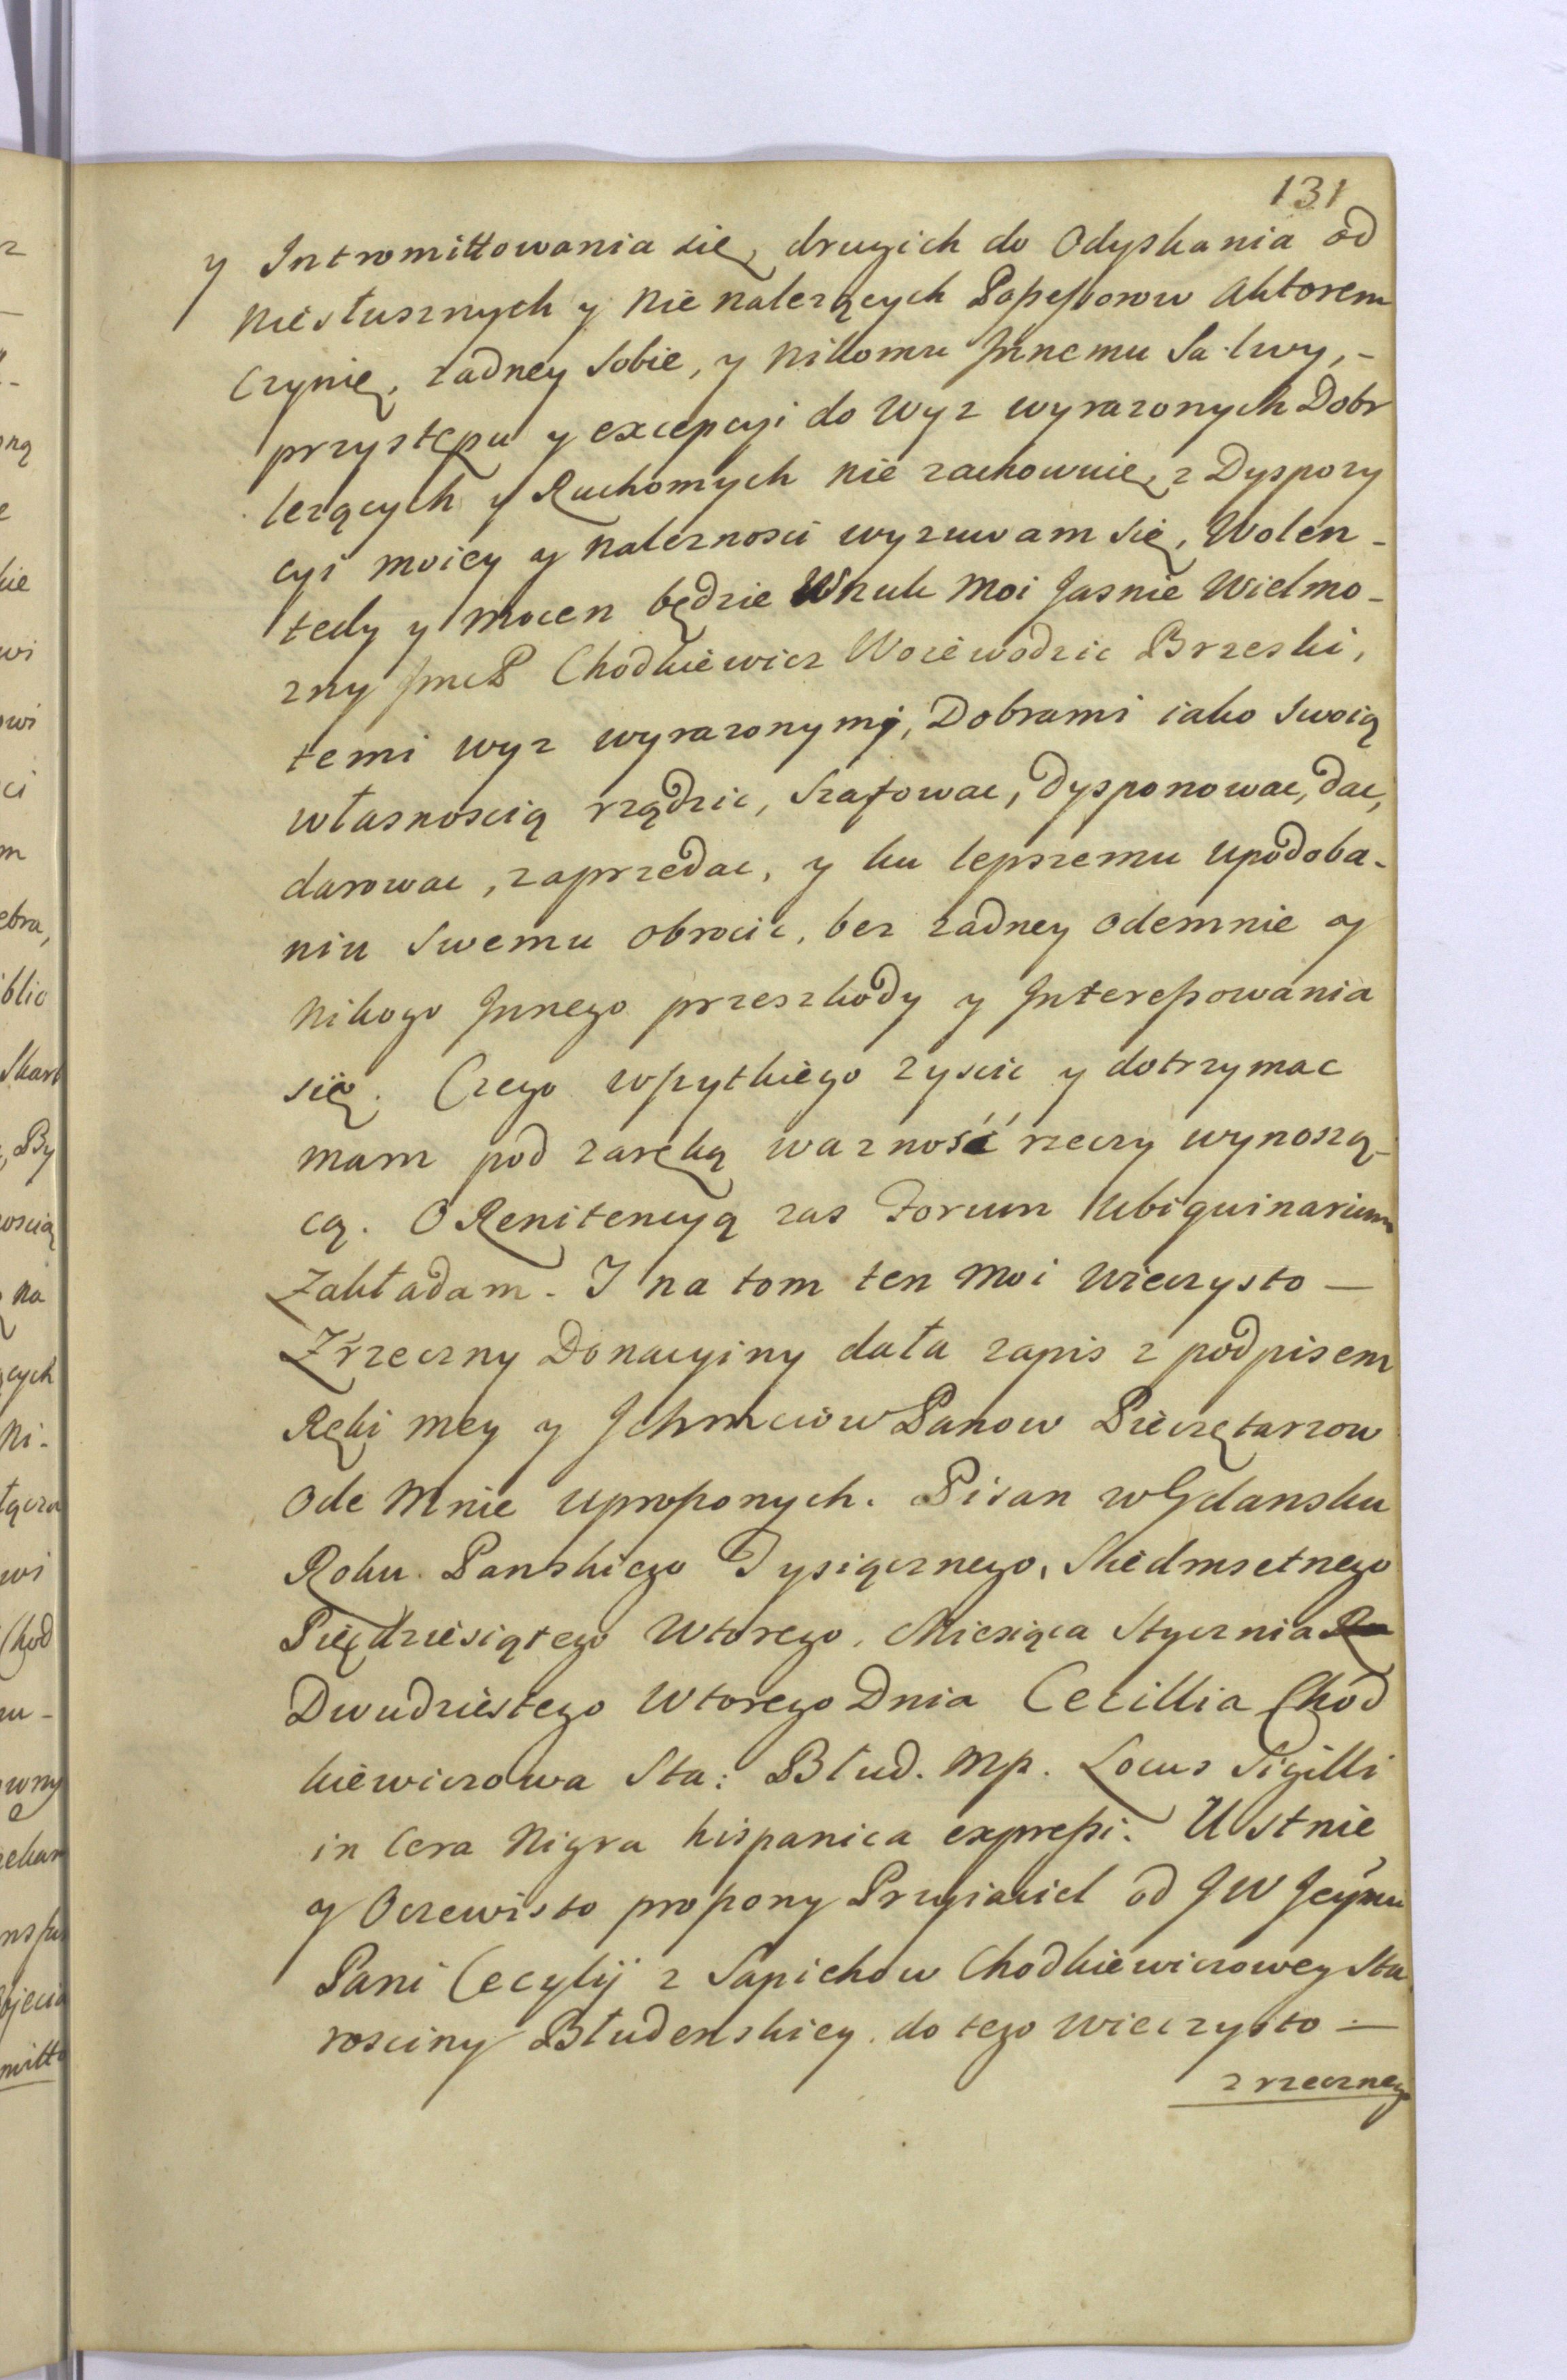 131
y Intromittowania się, drugich do Odyskania od
niesłusznych y nie nalezących Possessorow Aktorem
Czynię, zadney Sobie, y Nikomu Jnnemu Salwy,-
przystępu y excepcyi do wyz wyrazonych Dobr
lezących y Ruchomych nie zachowuię, z Dyspozy
cyi moiey y naleznosci wyzuwam się, Wolen-
tedy y mocen będzie Wnuk Moi Jasnie Wielmo-
zny JmcP Chodkiewicz Woiewodzic Brzeski,
temi wyz wyrazonymi, Dobrami iako Swoią
własnoscią rządzic, Szafowac, Dysponowac, dac,
darowac, zaprzedac, y ku lepszemu upodoba-
niu Swemu obrocic, bez zadney odemnie y
Nikogo Jnnego przeszkody y Jnteressowania
się. Czego wszytkiego zyscic y dotrzymac
mam pod zaręką wazność rzeczy wynoszą-
cą. O Renitencyą zas Forum Ubiquinarium
Zakładam. I na tom ten Moi Wieczysto—
Zrzeczny Donacyiny dała zapis z podpisem
Ręki mey y Jchmciow Panow Pieczętarzow
Ode Mnie uproszonych. Pisan w Gdansku
Roku Panskiego Tysiącznego, Siedmsetnego
Pięcdziesiątego Wtorego, Miesiąca Stycznia
Dwudziestego Wtorego Dnia Cecillia Chod
kiewiczowa Sta: Błud. Mp. Locus Sigilli
in Cera Nigra hispanica expressi. Ustnie
y Oczewisto proszony Przyiaciel od JW Jeymci
Pani Cecylij z Sapiehow Chodkiewiczowey Sta
rosciny Błudenskiey do tego wieczysto—
zrzecznego